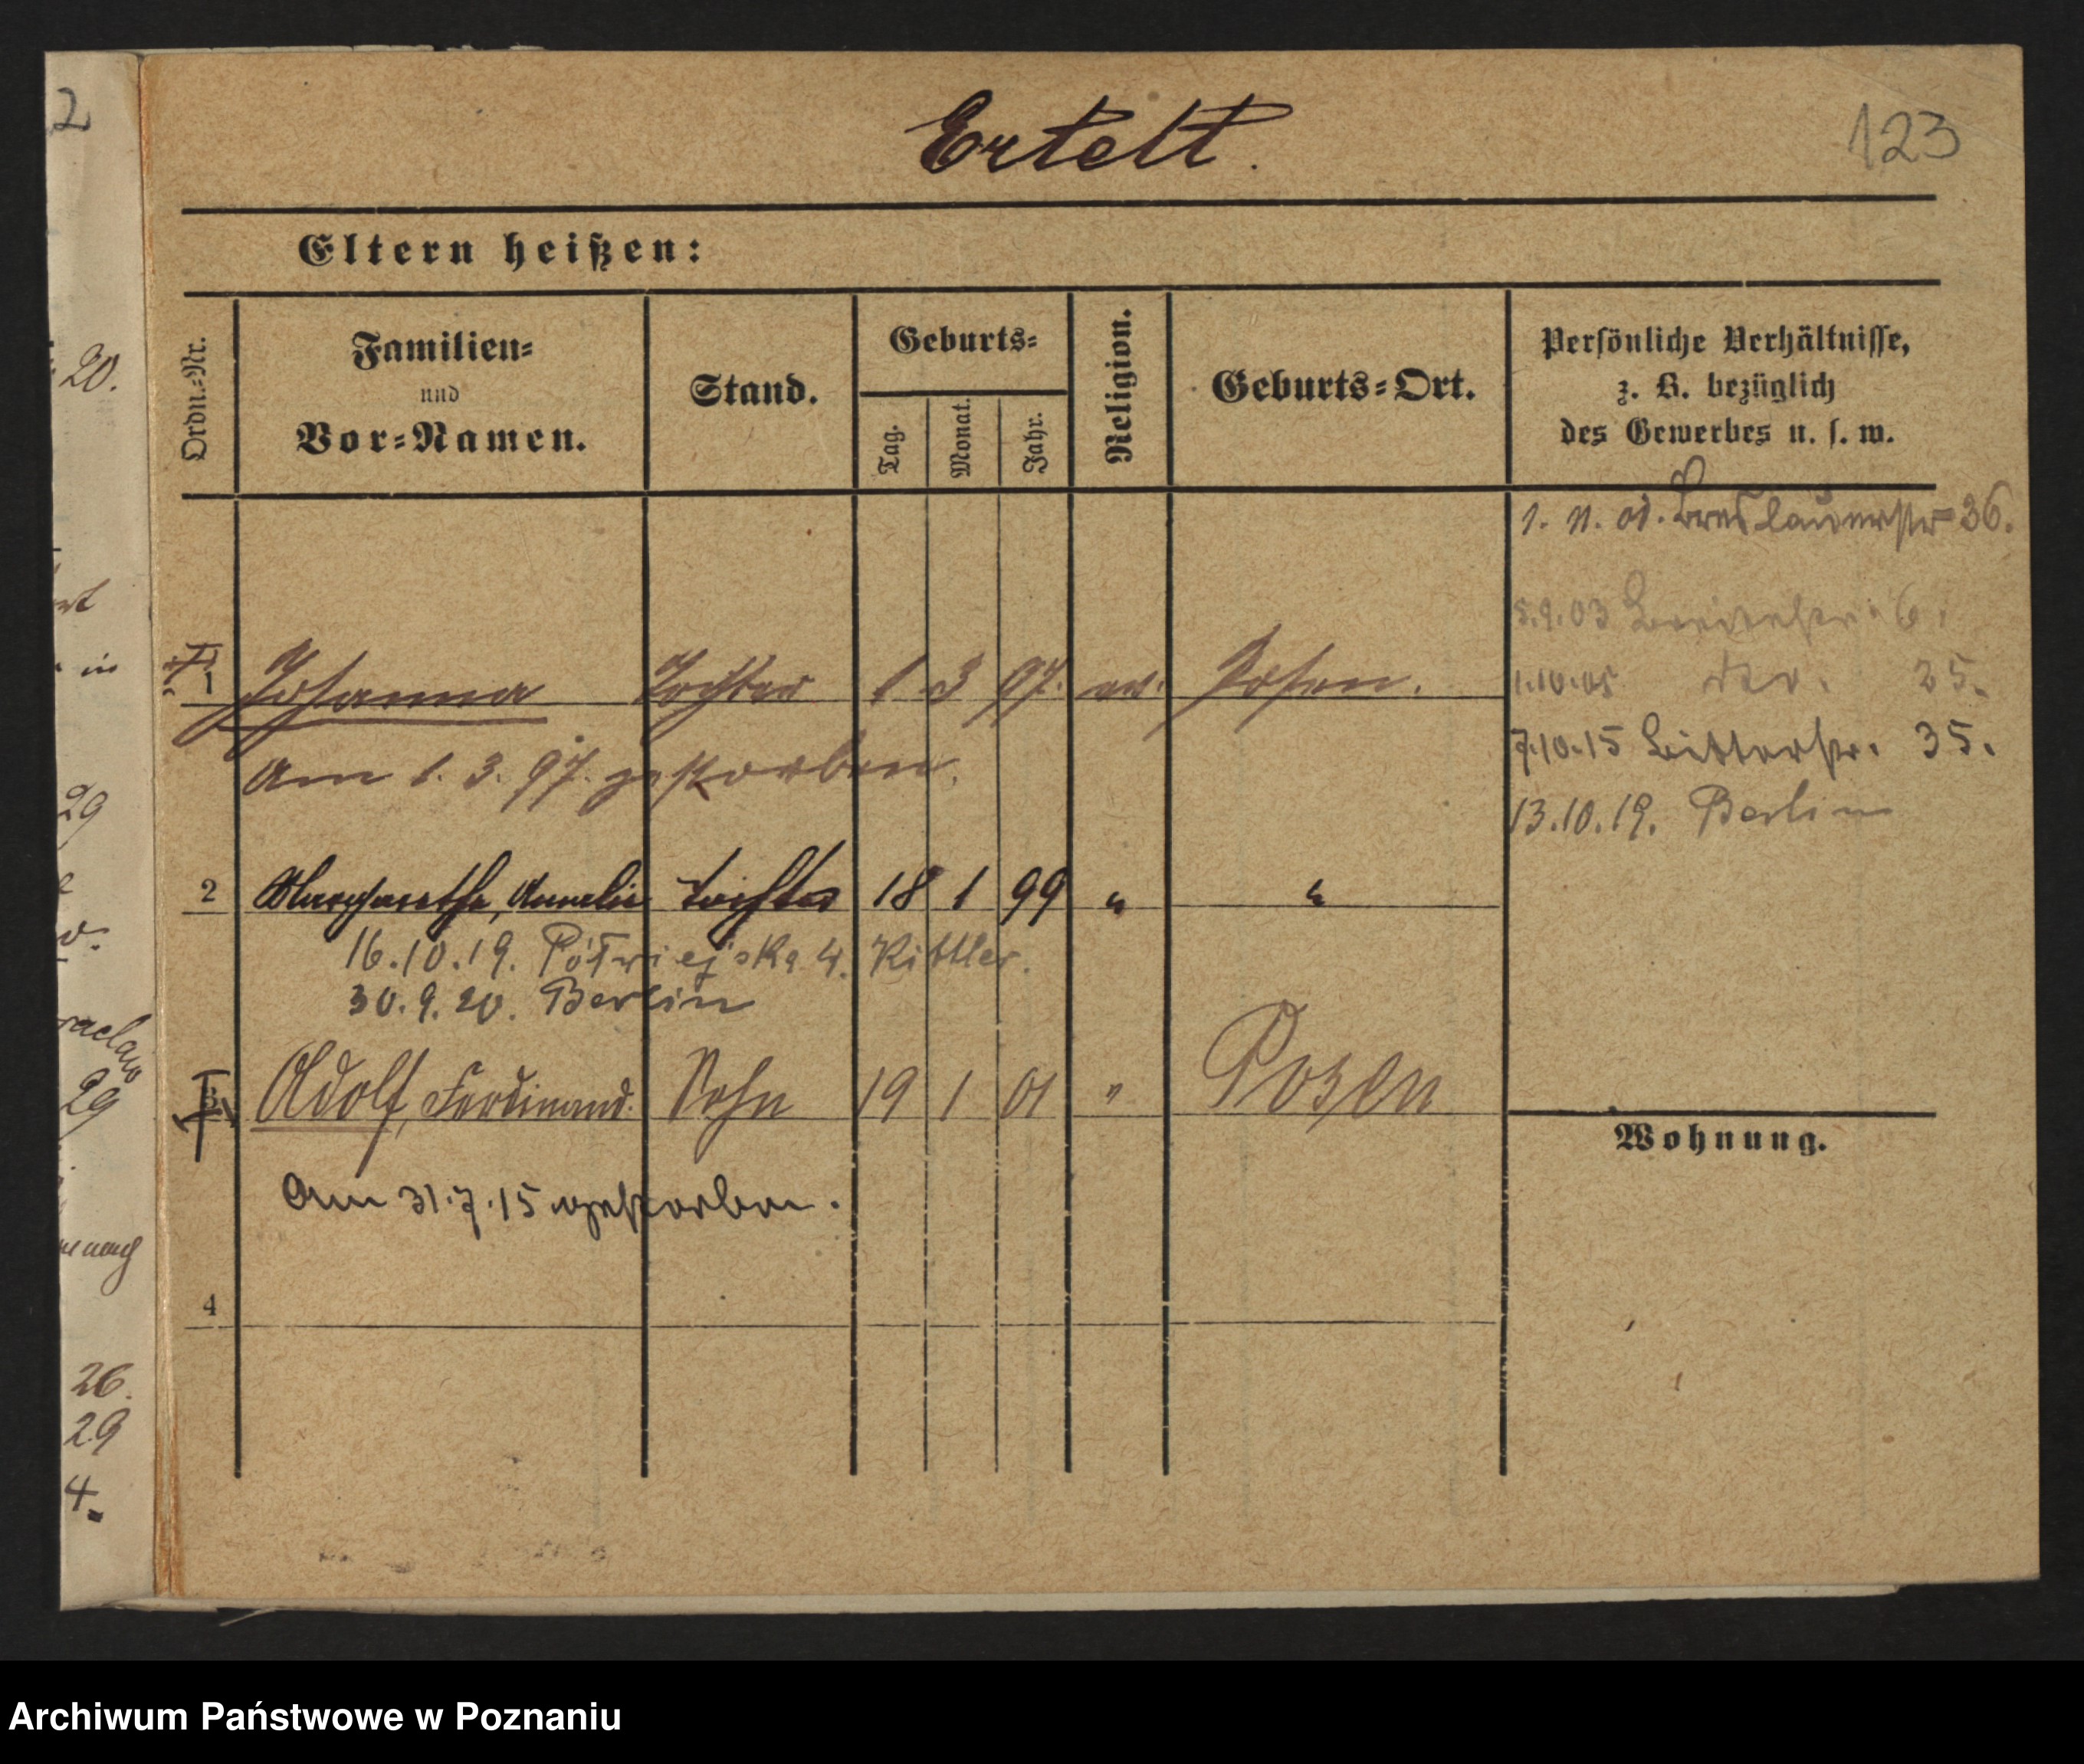 2
Ertelt.
123
Eltern heißen:
Ordn.=Nr.
Familien=
und
Vor=Namen.
Stand.
Geburts=
Tag.
Monat.
Jahr.
Religion.
Geburts=Ort.
Persönliche Verhältnisse,
z. B. bezüglich
des Gewerbes u. s. w.
Breslauerstr 36.
5.9.03 Breitestr. 6.
1.10.05 25.
7.10.15 Ritterstr. 35.
13.10.19. Berlin
1 Johanna Tochter 1 3 97. ev. Posen.
Am 1. 3. 97. gestorben.
2 Margarethe, Amalie Tochter 18 1 99 " "
16.10.19. Półwiejska 4. Kittler.
30.9.20. Berlin
3 Adolf, Ferdinand. Sohn 19 1 01 " Posen
Am 31.7.15 gestorben.
Wohnung.
4
20.
in
29
29
nach
26.
29
4.
Archiwum Państwowe w Poznaniu